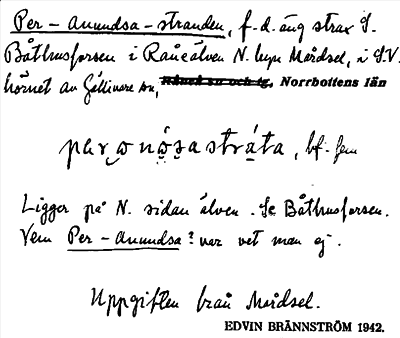 Per-Anundsa-stranden, f.d. äng strax S.
Båthusforsen i Råneälven N. byn Mårdsel, i S.V.
hörnet av Gällivare sn, Råneå sn och tg, Norrbottens län
paronǫ́sastrá̄ta, bf. fem
Ligger på N. sidan älven. Se Båthusforsen.
Vem Per-Anundsa? var vet man ej.
Uppgiften från Mårdsel.
EDVIN BRÄNNSTRÖM 1942.